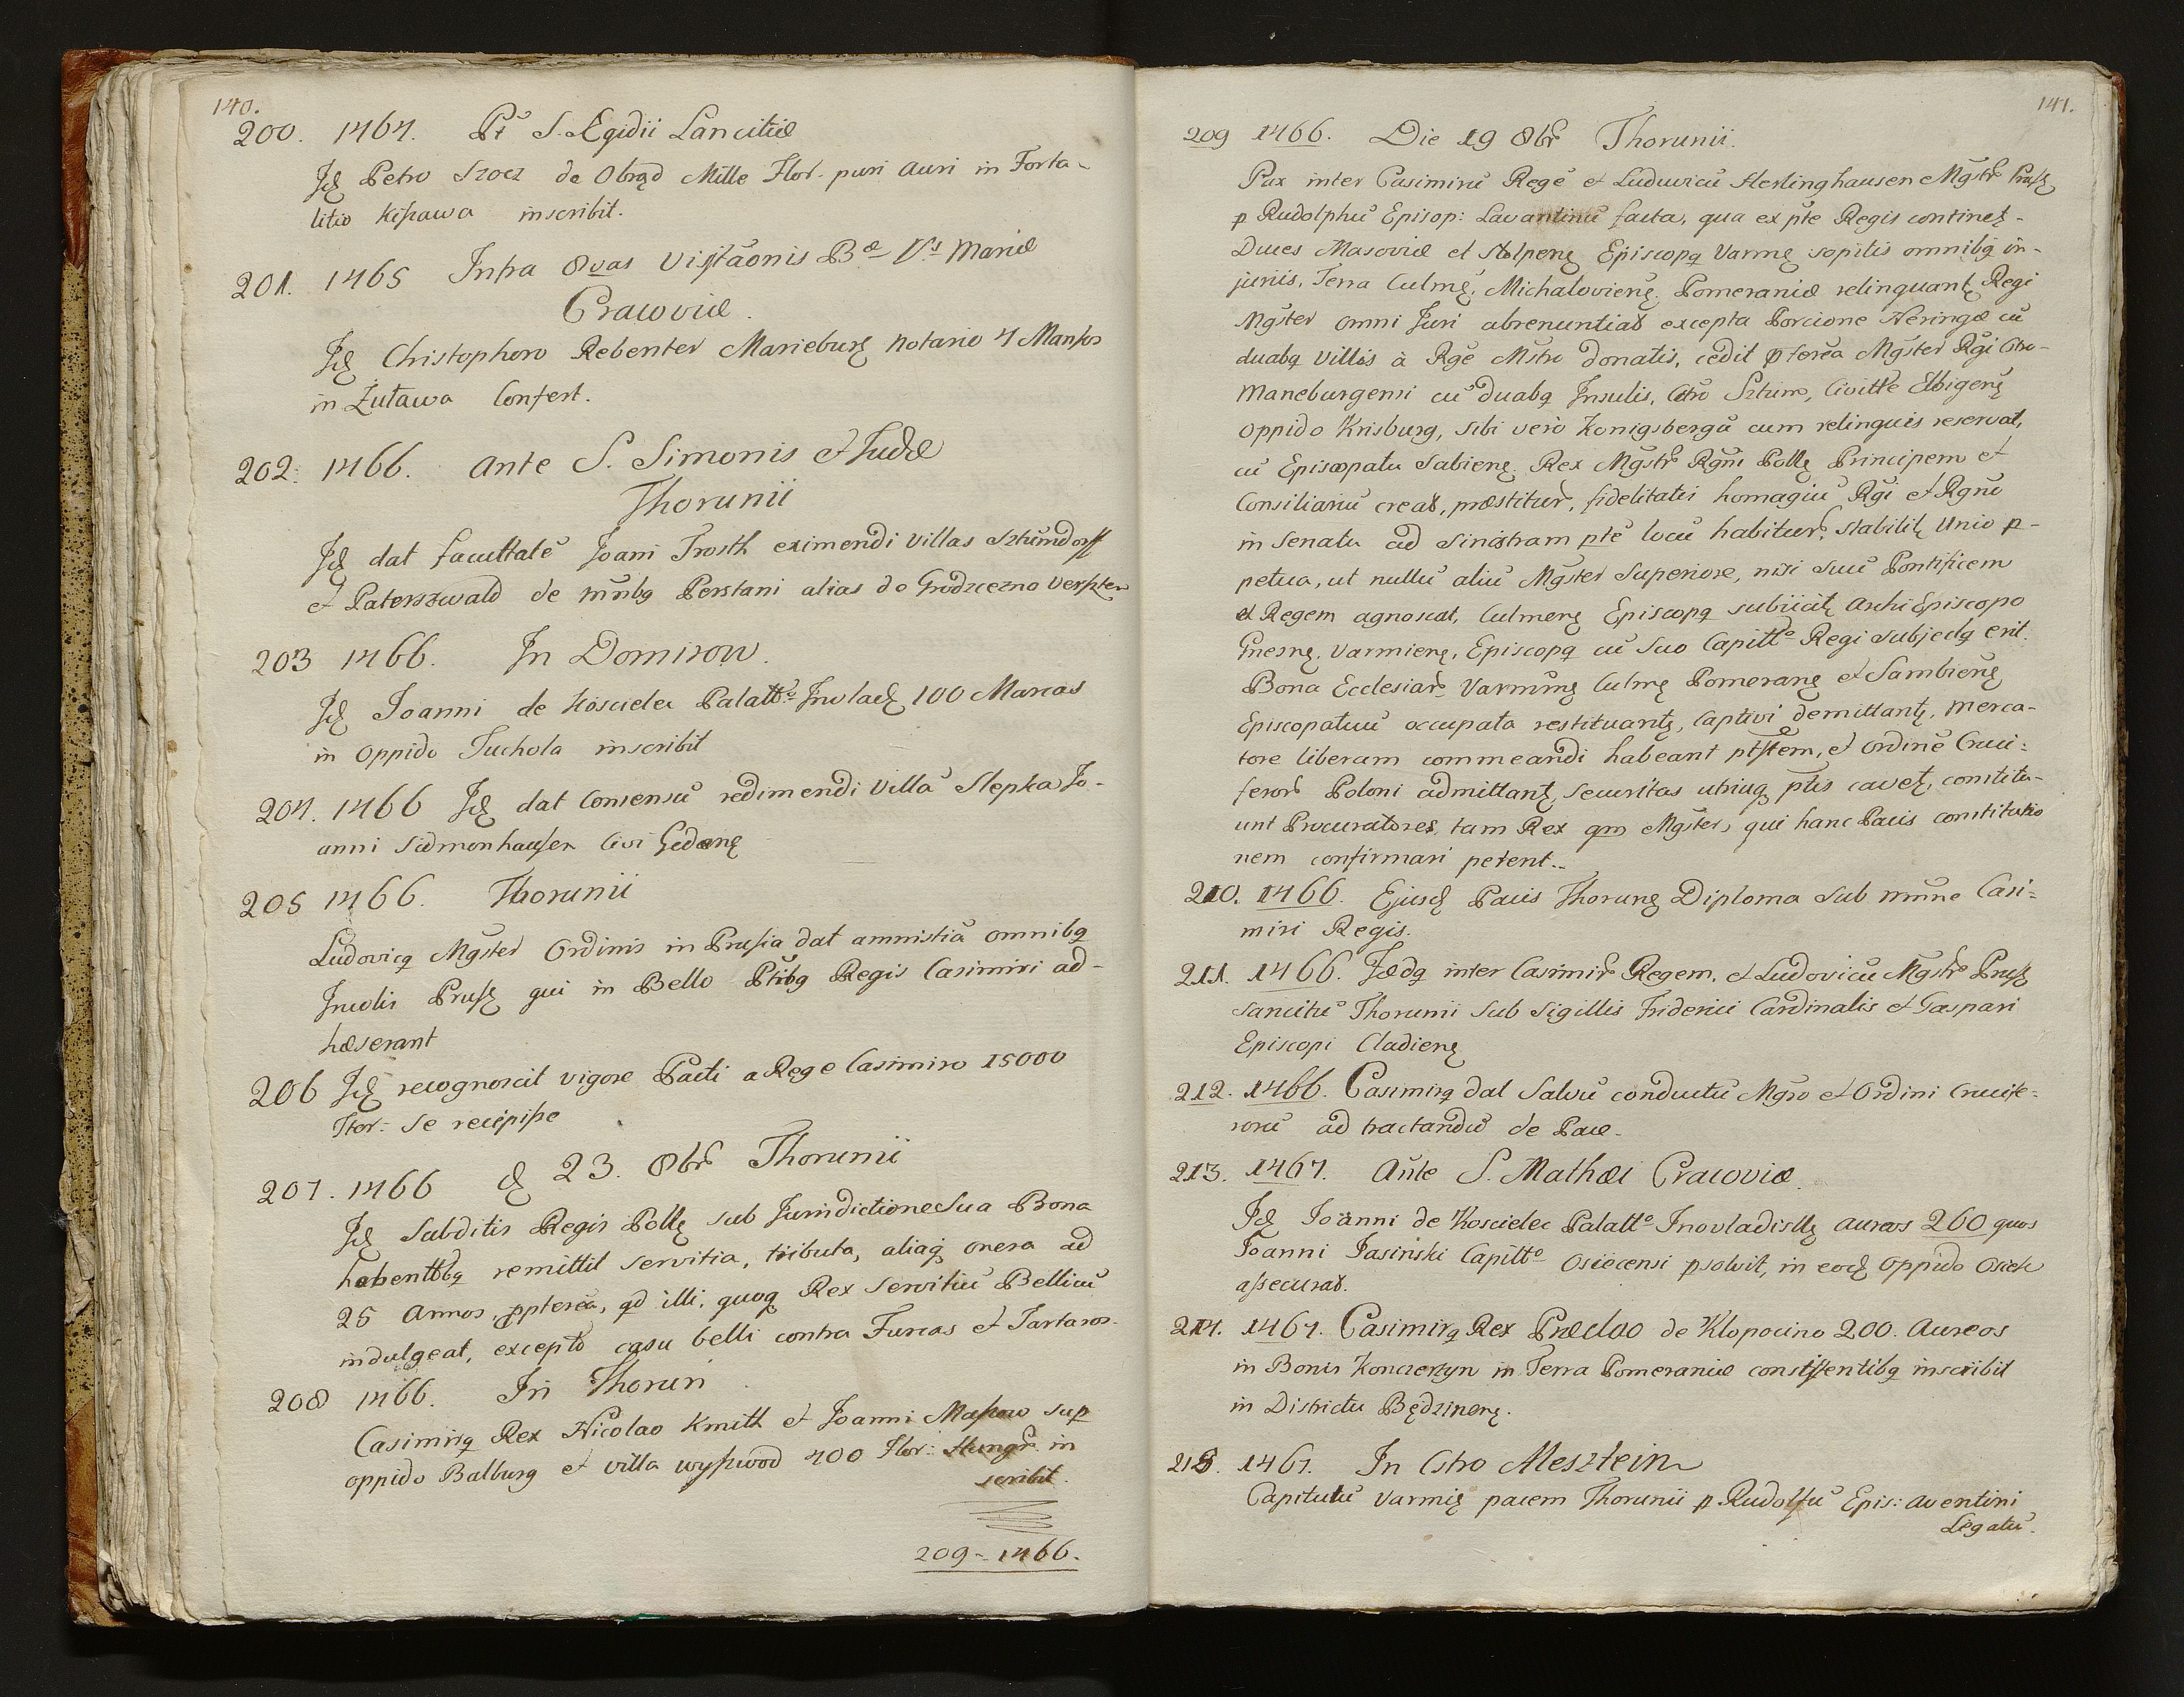 140.
200. 1464. Pt̃ S. Ægidii Lancitiæ
Jdȩ Petro Szocz de Obrąd Mille Flor. puri Auri in Forta-
litio Kiszawa inscribit.
201. 1465 Infra 8vas Visitãonis Bæ Vs Mariæ
Cracoviæ.
Jdȩ Christophoro Rebenter Marieburȩ Notario 4 Mansos
in Żuława Confert.
202. 1466. Ante S. Simonis et Judæ
Thorunii
Jdȩ dat facultatẽ Joani Trosth eximendi villas Sztumdorff
et Paterszwald de mñbq Perstani alias de Grodziezno
203 1466. In Domisow.
Jdȩ Joanni de Koscielec Palatto Jnoladȩ 100 Marcas
in Oppido Tuchola inscribit
204. 1466 Jdȩ dat Consensũ redimendi Villã Slepka Jo-
anni Sidmonhausen Civi Gedanȩ
205 1466. Thorunii
Ludovicq Mgster Ordinis in Prusia dat amnistiã omnibq
Jncolis Prusȩ qui in Bello Ptibq Regis Casimiri ad-
hæserant
206 Jdȩ recognoscit vigore Pacti a Rege Casimiro 15000
Flor: se recepisse
207. 1466 dȩ 23. 8br̃ Thorunii
Jdȩ Subditis Regis Pollȩ sub Jurisdictione Sua Bona
habenttbq remittit servitia, tributa, aliaq onera ad
25 Annos, ppterea, qd illi, quoq Rex Servitiũ Bellicũ
indulgeat, excepto casu belli contra Turcas et Tartaros.
208 1466. In Thorun.
Casimirq Rex Nicolao Kmith et Joanni Massow sup
oppido Balburg et villa wyszwod 400 Flor: Hungr. in
scribit.
209 - 1466.
141.
209 1466. Die 19 8br̃ Thorunii.
Pax inter Casimirũ Regẽ et Luduvicũ Herlinghausen Mgstr̃ Prusȩ
p Rudolphũ Episop: Lavantinũ facta, qua ex pte Regis continetȩ-
Duces Masoviæ et Stolpenȩ Episcopq Varmȩ sopitis omnibq in-
juriis, Terra Culmȩ, Michalovienȩ. Pomeraniæ relinquantȩ Regi
Mgster omni Juri abrenuntiat excepta Porcione Neringæ cũ
duabq Villis à Rge Mstro donatis, cedit pterea Mgster Rgi Cstro-
Maneburgensi cũ duabq Jnsulis, Cstro Sztum, Civitte Elbigenȩ
Oppido Krisburg, sibi vero Konigsbergũ cum reliquis reservat,
cũ Episcopatu Sabienȩ. Rex Mgstr̃ Rgni Pollȩ Principem et
Consiliariũ creat, præstitur̃, fidelitatis homagiũ Rgi et Rgno
in Senatu ad sinistram ptẽ locũ habitur̃, stabilitȩ Unio p-
petua, ut nullũ aliũ Mgster Superiore, nisi suũ Pontificem
et Regem agnoscat, Culmenȩ Episcopq subiicitȩ Archi Episcopo
Gnesnȩ. Varmienȩ, Episcopq cũ suo Capittlo Regi subjectq erit.
Bona Ecclesiar̃ Varminȩ Culmȩ Pomeranȩ et Sambienȩ
Episcopatuũ occupata restituantȩ, Captivi demittantȩ, Merca-
tore liberam commeandi habeant ptstem, et Ordinẽ Cruci:
feror̃ Poloni admittantȩ, securitas utriusq ptis cavetȩ, constitu-
unt Procuratores, tam Rex qm Mgster, qui hanc Pacis constitutio
nem confirmari petent.
210. 1466. Ejusdȩ Pacis Thorunȩ Diploma sub mũne Casi:
miri Regis.
211. 1466. Fædq inter Casimir̃ Regem, et Ludovicũ Mgstr̃ Prusȩ
sancitũ Thorunii sub Sigillis Friderici Cardinalis et Gaspari
Episcopi Cladienȩ
212. 1466. Casimirq dat Salvũ conductũ Mgro et Ordini Crucife:
rorũ ad tractandũ de Pace.
213. 1467. Ante S. Mathæi Cracoviæ.
Jdȩ Joanni de Koscielec Palatto Inovladisllȩ aureos 260 quos
Joanni Jasiński Capitto Osiecensi psolvit, in eodȩ oppido Osiek
assecurat.
214. 1467. Casimirq Rex Præclao de Klopocino 200. Aureos
in Bonis Konczerzyn in Terra Pomeraniæ consistentibq inscribit
in Districtu Będzinenȩ.
215. 1467. In Cstro Mesztein
Capitulũ Varmiȩ pacem Thorunii p Rudolfũ Epis: Aventini
Legatũ.